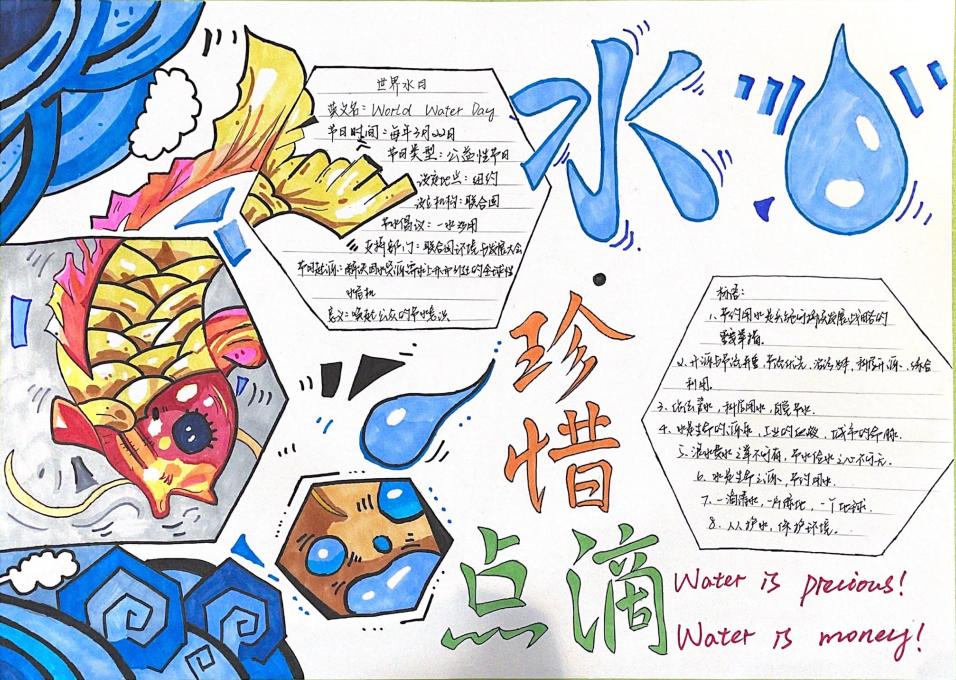 世界水日
英文名：World Water Day
节日时间：每年3月22日
节日类型：公益性节日
设定地点：纽约
设立机构：联合国
节水倡议：一水多用
支持部门：联合国环境与发展大会
节日起源：解决因水资源需求上升而引起的全球性
水危机
意义：唤起公众的节水意识
水
珍
惜
点滴
标语：
1、节约用水是关系到可持续发展战略的
重要举措。
2、开源与节流并重，节流优先、治污为本、科学开源、综合
利用。
3、依法管水，科学用水，自觉节水．
4、水是生命的源泉、工业的血液、城市的命脉．
5、浪水费水之举不可有，节水惜水之心不可无．
6、水是生命之源，节约用水．
7、一滴清水，一片绿地，一个地球．
8、人人护水，保护环境．
Water is precious!
Water is money!